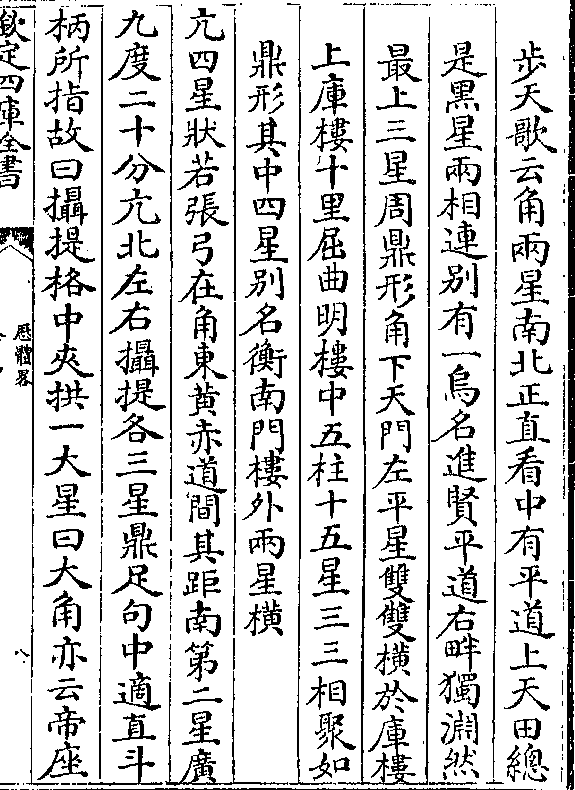 步天歌云角兩星南北正直看中有平道上天田總
是黑星兩相連别有一烏名進賢平道右畔獨淵然
最上三星周鼎形角下天門左平星雙雙橫於庫樓
上庫樓十里屈曲明樓中五柱十五星三三相聚如
鼎形其中四星别名衡南門樓外兩星橫
亢四星狀若張弓在角東黄赤道間其距南第二星廣
九度二十分亢北左右攝提各三星鼎足句中適直斗
柄所指故曰攝提格中夾拱一大星曰大角亦云帝座
欽定四庫全書
厯體畧
八